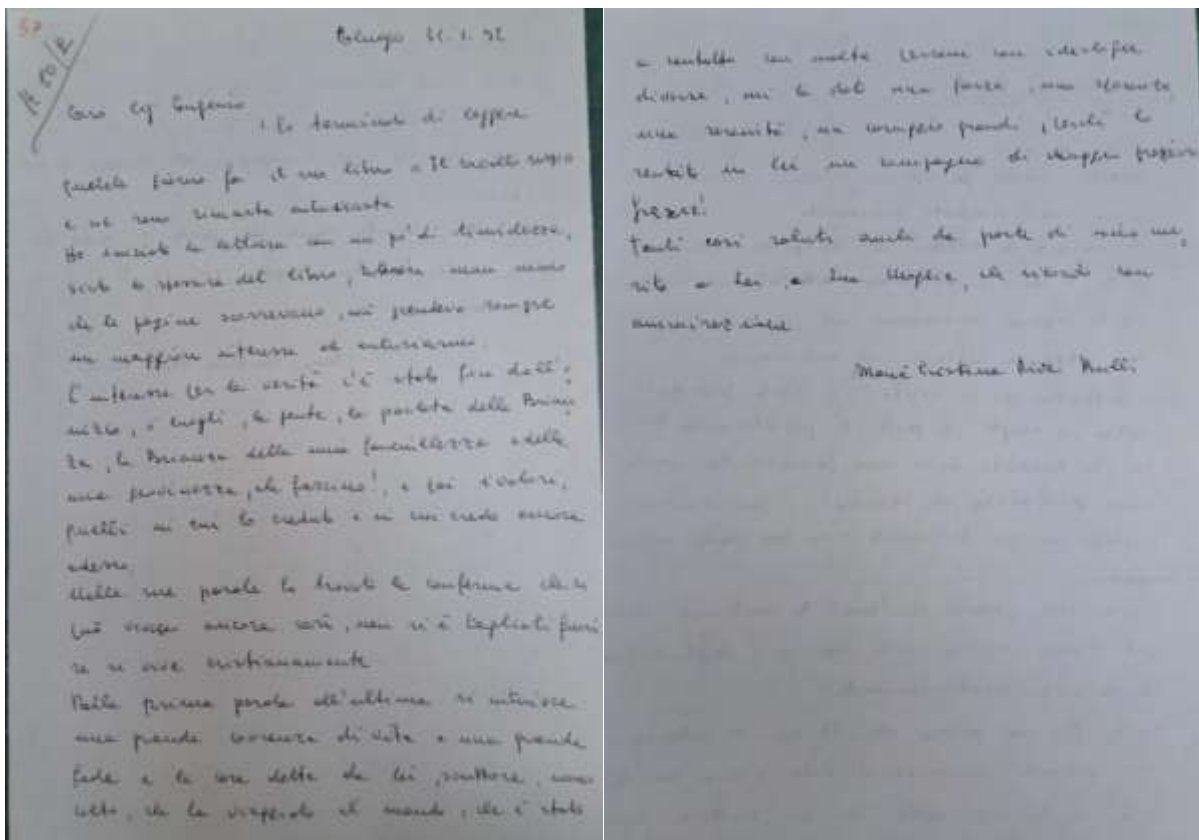 57
A 80/2
21.1.92
Caro Eugenio
, ho terminato di leggere
qualche giorno fa il suo libro "Il cavallo rosso
e ne sono rimasta entusiasta
Ho iniziato la lettura con un po' di timidezza,
visto lo spessore del libro, man mano
che le pagine scorrevano, mi prendeva sempre
un maggiore interesse ed entusiasmo.
L'interesse per la verità c'è stato fin dall'i
nizio, i luoghi, la gente, la parlata della Brian
za, la Brianza della mia fanciullezza e della
mia giovinezza, che fascino!, e poi i valori,
quelli in cui ho creduto e in cui credo ancora
adesso.
Nelle sue parole ho trovato la conferma che si
può vivere ancora così, non si è tagliati fuori
se si vive cristianamente
Dalla prima parola all'ultima si intuisce
una grande coerenza di vita e una grande
fede e le cose dette da lei, scrittore, uomo
colto, che ha viaggiato il mondo, che è stato
a contatto con molte persone con ideologie
diverse, mi ha dato una forza, una
una serenità, un coraggio grandi, perché ho
sentito in lei un compagno di viaggio prezioso
Grazie!
Tanti cari saluti anche da parte di mio ma,
rito a Lei e Sua Moglie, che ricordo con
ammirazione
Maria Cristina